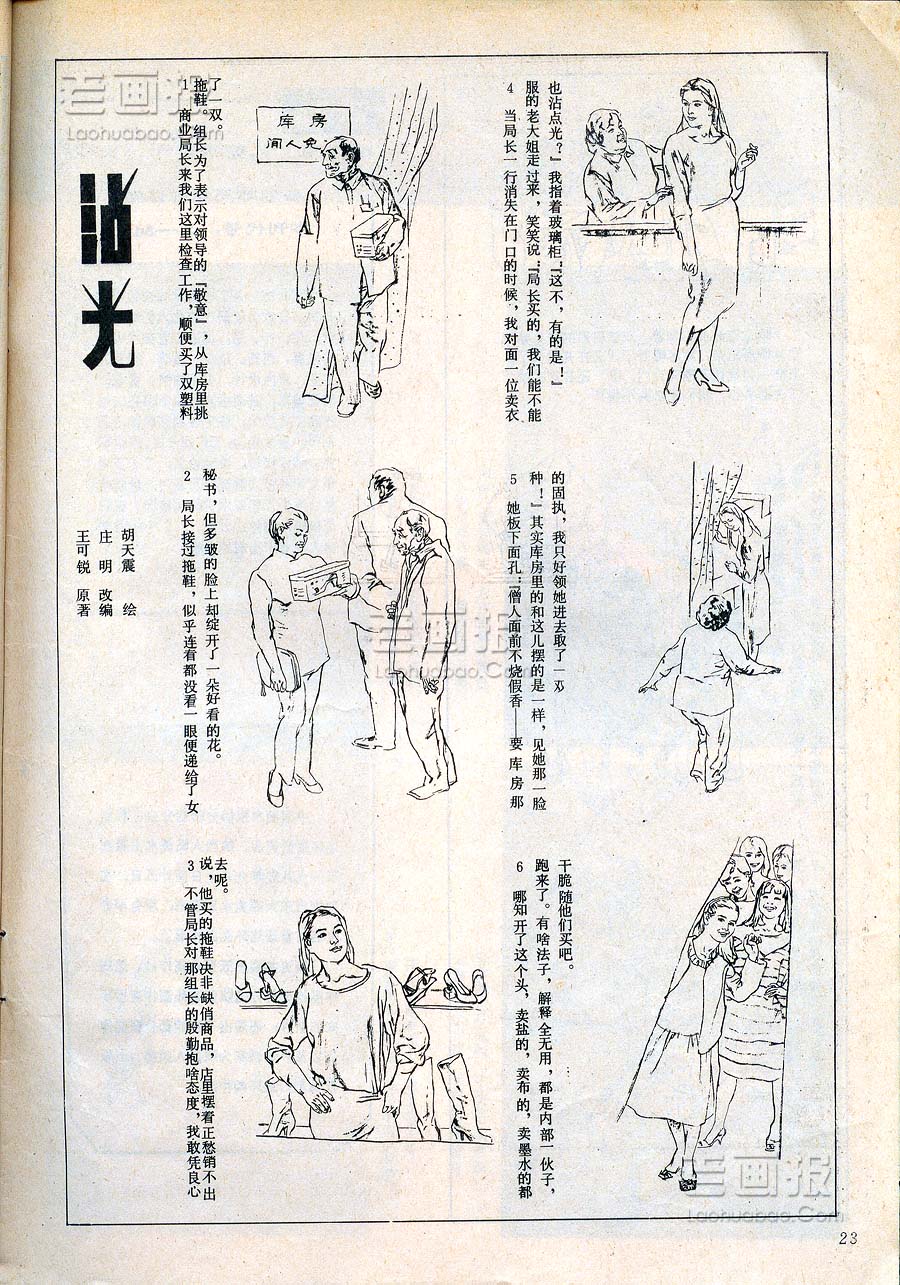 沾光
胡天震 绘
庄明 改编
王可锐 原著
1 商业局长来我们这里检查工作，顺便买了双塑料
拖鞋。组长为了表示对领导的“敬意”，从库房里挑
了一双。
库房
闲人免
2 局长接过拖鞋，似乎连看都没看一眼便递给了女
秘书，但多皱的脸上却绽开了一朵好看的花。
3 不管局长对那组长的殷勤抱啥态度，我敢凭良心
说，他买的拖鞋决非缺俏商品，店里摆着正愁销不出
去呢。
4 当局长一行消失在门口的时候，我对面一位卖衣
服的老大姐走过来，笑笑说：“局长买的，我们能不能
也沾点光？”我指着玻璃柜：“这不，有的是！”
5 她板下面孔：“僧人面前不烧假香——要库房那
种！”其实库房里的和这儿摆的是一样，见她那一脸
的固执，我只好领她进去取了一双
6 哪知开了这个头，卖盐的，卖布的，卖墨水的都
跑来了。有啥法子，解释全无用，都是内部一伙子，
干脆随他们买吧。
老画报
Laohuabao.Com
老画报
Laohuabao.Com
老画报
Laohuabao.Com
23